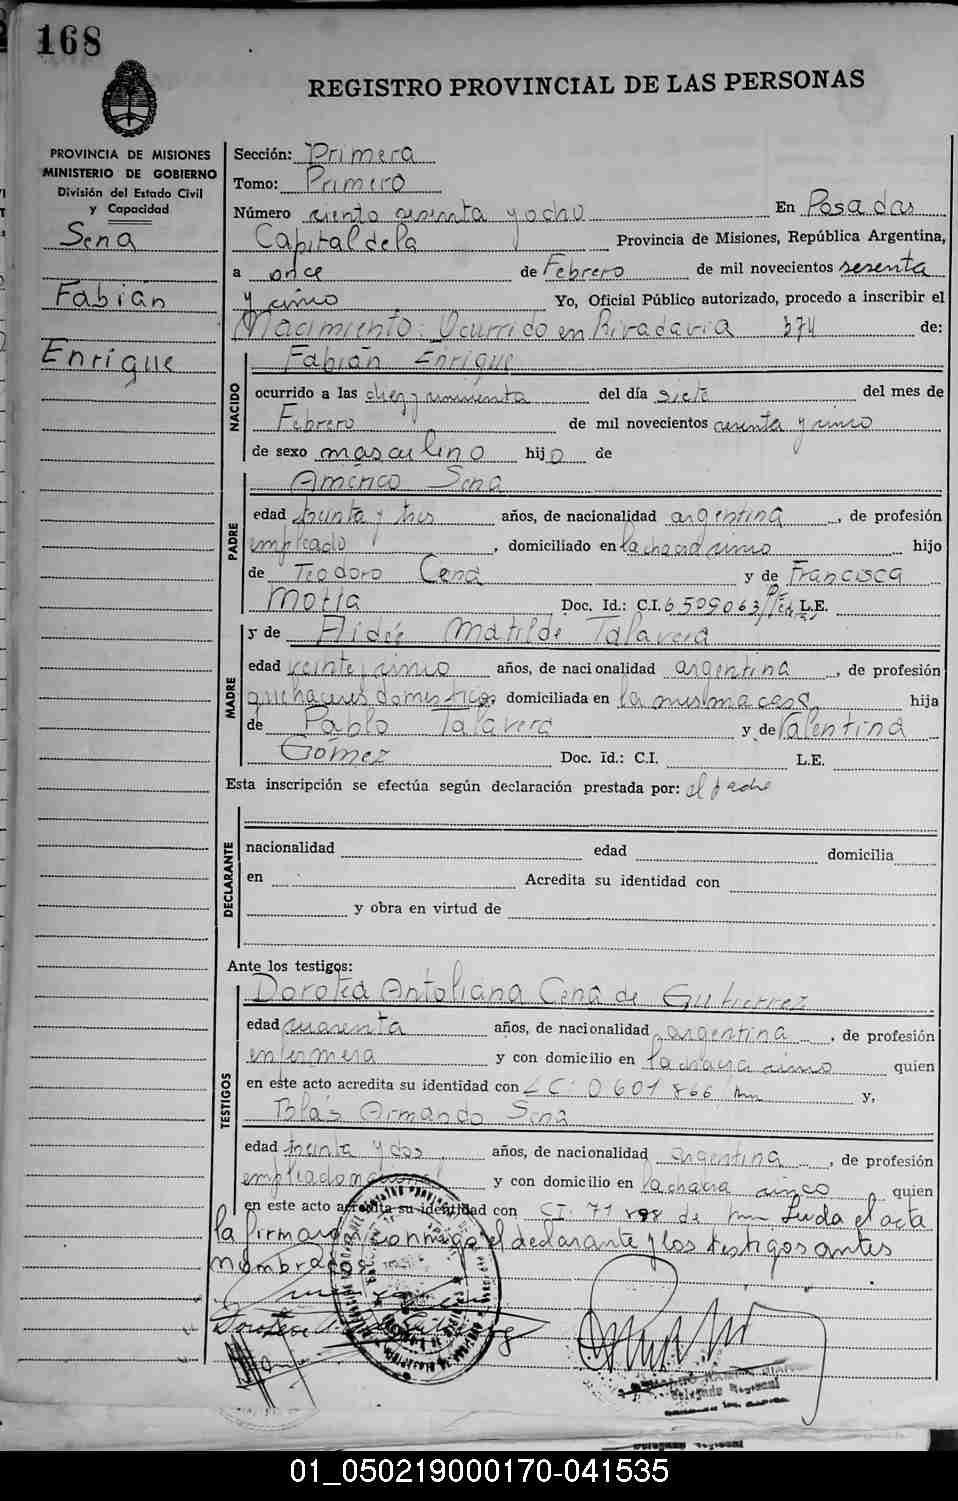 168
REGISTRO PROVINCIAL DE LAS PERSONAS
PROVINCIA DE MISIONES
MINISTERIO DE GOBIERNO
División del Estado Civil
y Capacidad
Sena
Fabián
Enrique
Sección: Primera
Tomo: Primero
Número ciento sesenta y ocho En Posadas
Capital de la Provincia de Misiones, República Argentina,
a once de Febrero de mil novecientos sesenta
y cinco Yo, Oficial Público autorizado, procedo a inscribir el
Nacimiento: Ocurrido en Rivadavia 374 de:
NACIDO
Fabián Enrique
ocurrido a las diez y cincuenta del día siete del mes de
Febrero de mil novecientos sesenta y cinco
de sexo masculino hijo de
PADRE
Américo Sena
edad treinta y tres años, de nacionalidad argentina, de profesión
empleado, domiciliado en la chacra cinco hijo
de Teodoro Cena y de Francisca
Motta Doc. Id.: C.I. 6509063 L.E.
MADRE
y de Aidée Matilde Talavera
edad veinte cinco años, de nacionalidad argentina, de profesión
quehaceres domésticos, domiciliada en la misma casa, hija
de Pablo Talavera y de Valentina
Gomez Doc. Id.: C.I. L.E.
Esta inscripción se efectúa según declaración prestada por: el padre
DECLARANTE
nacionalidad edad domicilia
en Acredita su identidad con
y obra en virtud de
Ante los testigos:
TESTIGOS
Dorotea Antoliana Cena de Gutierrez
edad cuarenta años, de nacionalidad argentina, de profesión
enfermera y con domicilio en la chacra cinco quien
en este acto acredita su identidad con L C: 0601866 y,
Blás Armando Sena
edad treinta y dos años, de nacionalidad argentina, de profesión
empleado y con domicilio en la chacra cinco, quien
en este acto acredita su identidad con CI. 71 de Leida el acta
la firmaron conmigo el declarante y los testigos antes
nombrados
Delegado Regional
01_050219000170-041535